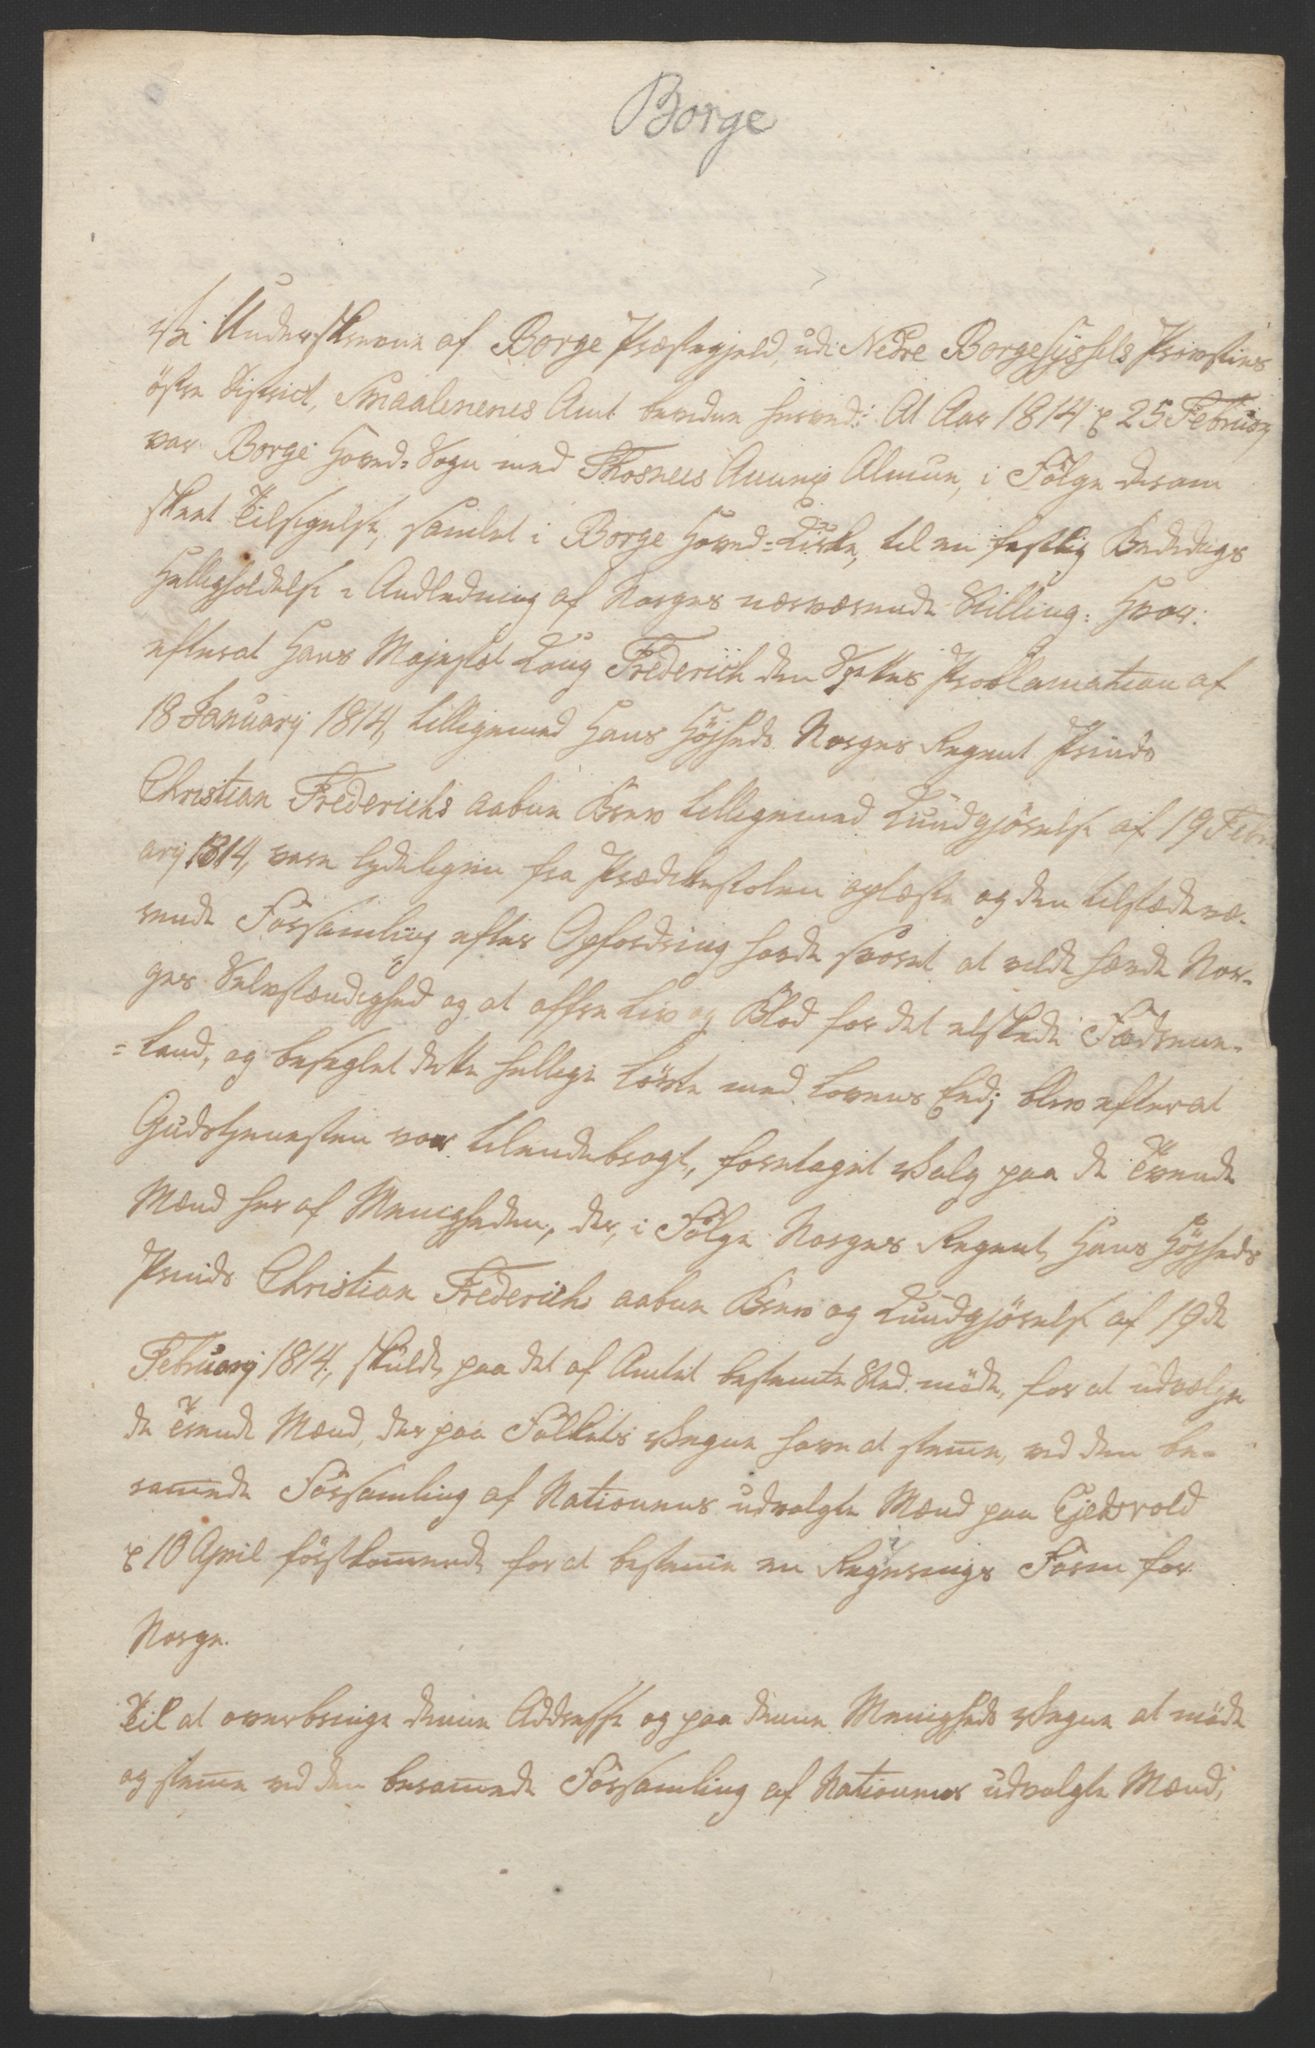 Borge
Vi Underskrevne af Borge Præstegjeld, udi Nedre Borgesyssels Provsties
östre District, Smaalenenes Amt kundue herved: At Aar 1814 25 Februarj
var Borge Hoved-Sogn med Thosnees Annex Almue, i Fölge derom
skeet Tilsigelse, samlet i Borge Hoved-Kirke, til en festlig Bededags
Helligholdelse i Andledning af Norges nærværende Stilling: Hvor:
efterat Hans Majestæt Kong Frederich den Sjettes Proclamation af
18 Januarij 1814, tilligemed Hans Højheds Norges Regent Prinds
Christian Frederichs aabne Brev tilligemed Kundgjörelse af 19 Febru
arij 1814, vare lydeligen fra Prædikestolen oplæste og den tilstædevæ-
rende Forsamling efter Opfordring havde svoret at vilde hævde Nor-
ges Selvstændighed og at offre Liv og Blod for det elskede Fædrene-
=land, og beseglet dette hellige Löfte med Lovens Eed; blev efterat
Gudstjenesten var tilendebragt, foretaget Valg paa de Tvende
Mænd her af Menigheden, der, i Fölge Norges Regent, Hans Højheds
Prinds Christian Frederichs aabne Brev og Kundgjörelse af 19de
Februarij 1814, skulde paa det af Amtet bestemte Sted möde, for at udvælge
de Trende Mænd, der paa Folkets Vegne have at stem̅e, ved den be-
ram̅ede Forsamling af Nationens udvalgte Mænd paa Ejdsvold
10 April förstkom̅ende for at bestem̅e en Regjerings Form for
Norge.
Til at overbringe denne Addresse og paa denne Menigheds Vegne at möde
og stem̅e ved den beram̅ede Forsamling af Nationens udvalgte Mænd,